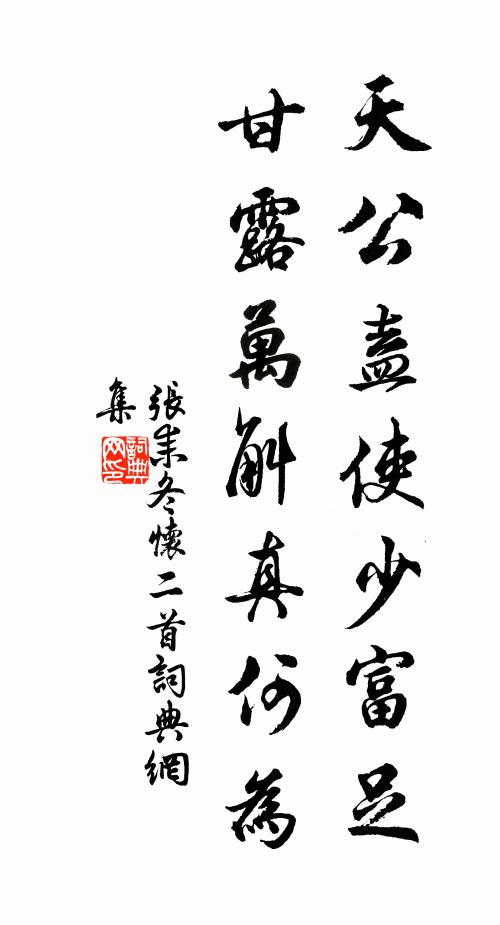 天公盍使少富足
甘露萬斛真何為
張耒冬懷二首詞典網
集
詞典网印